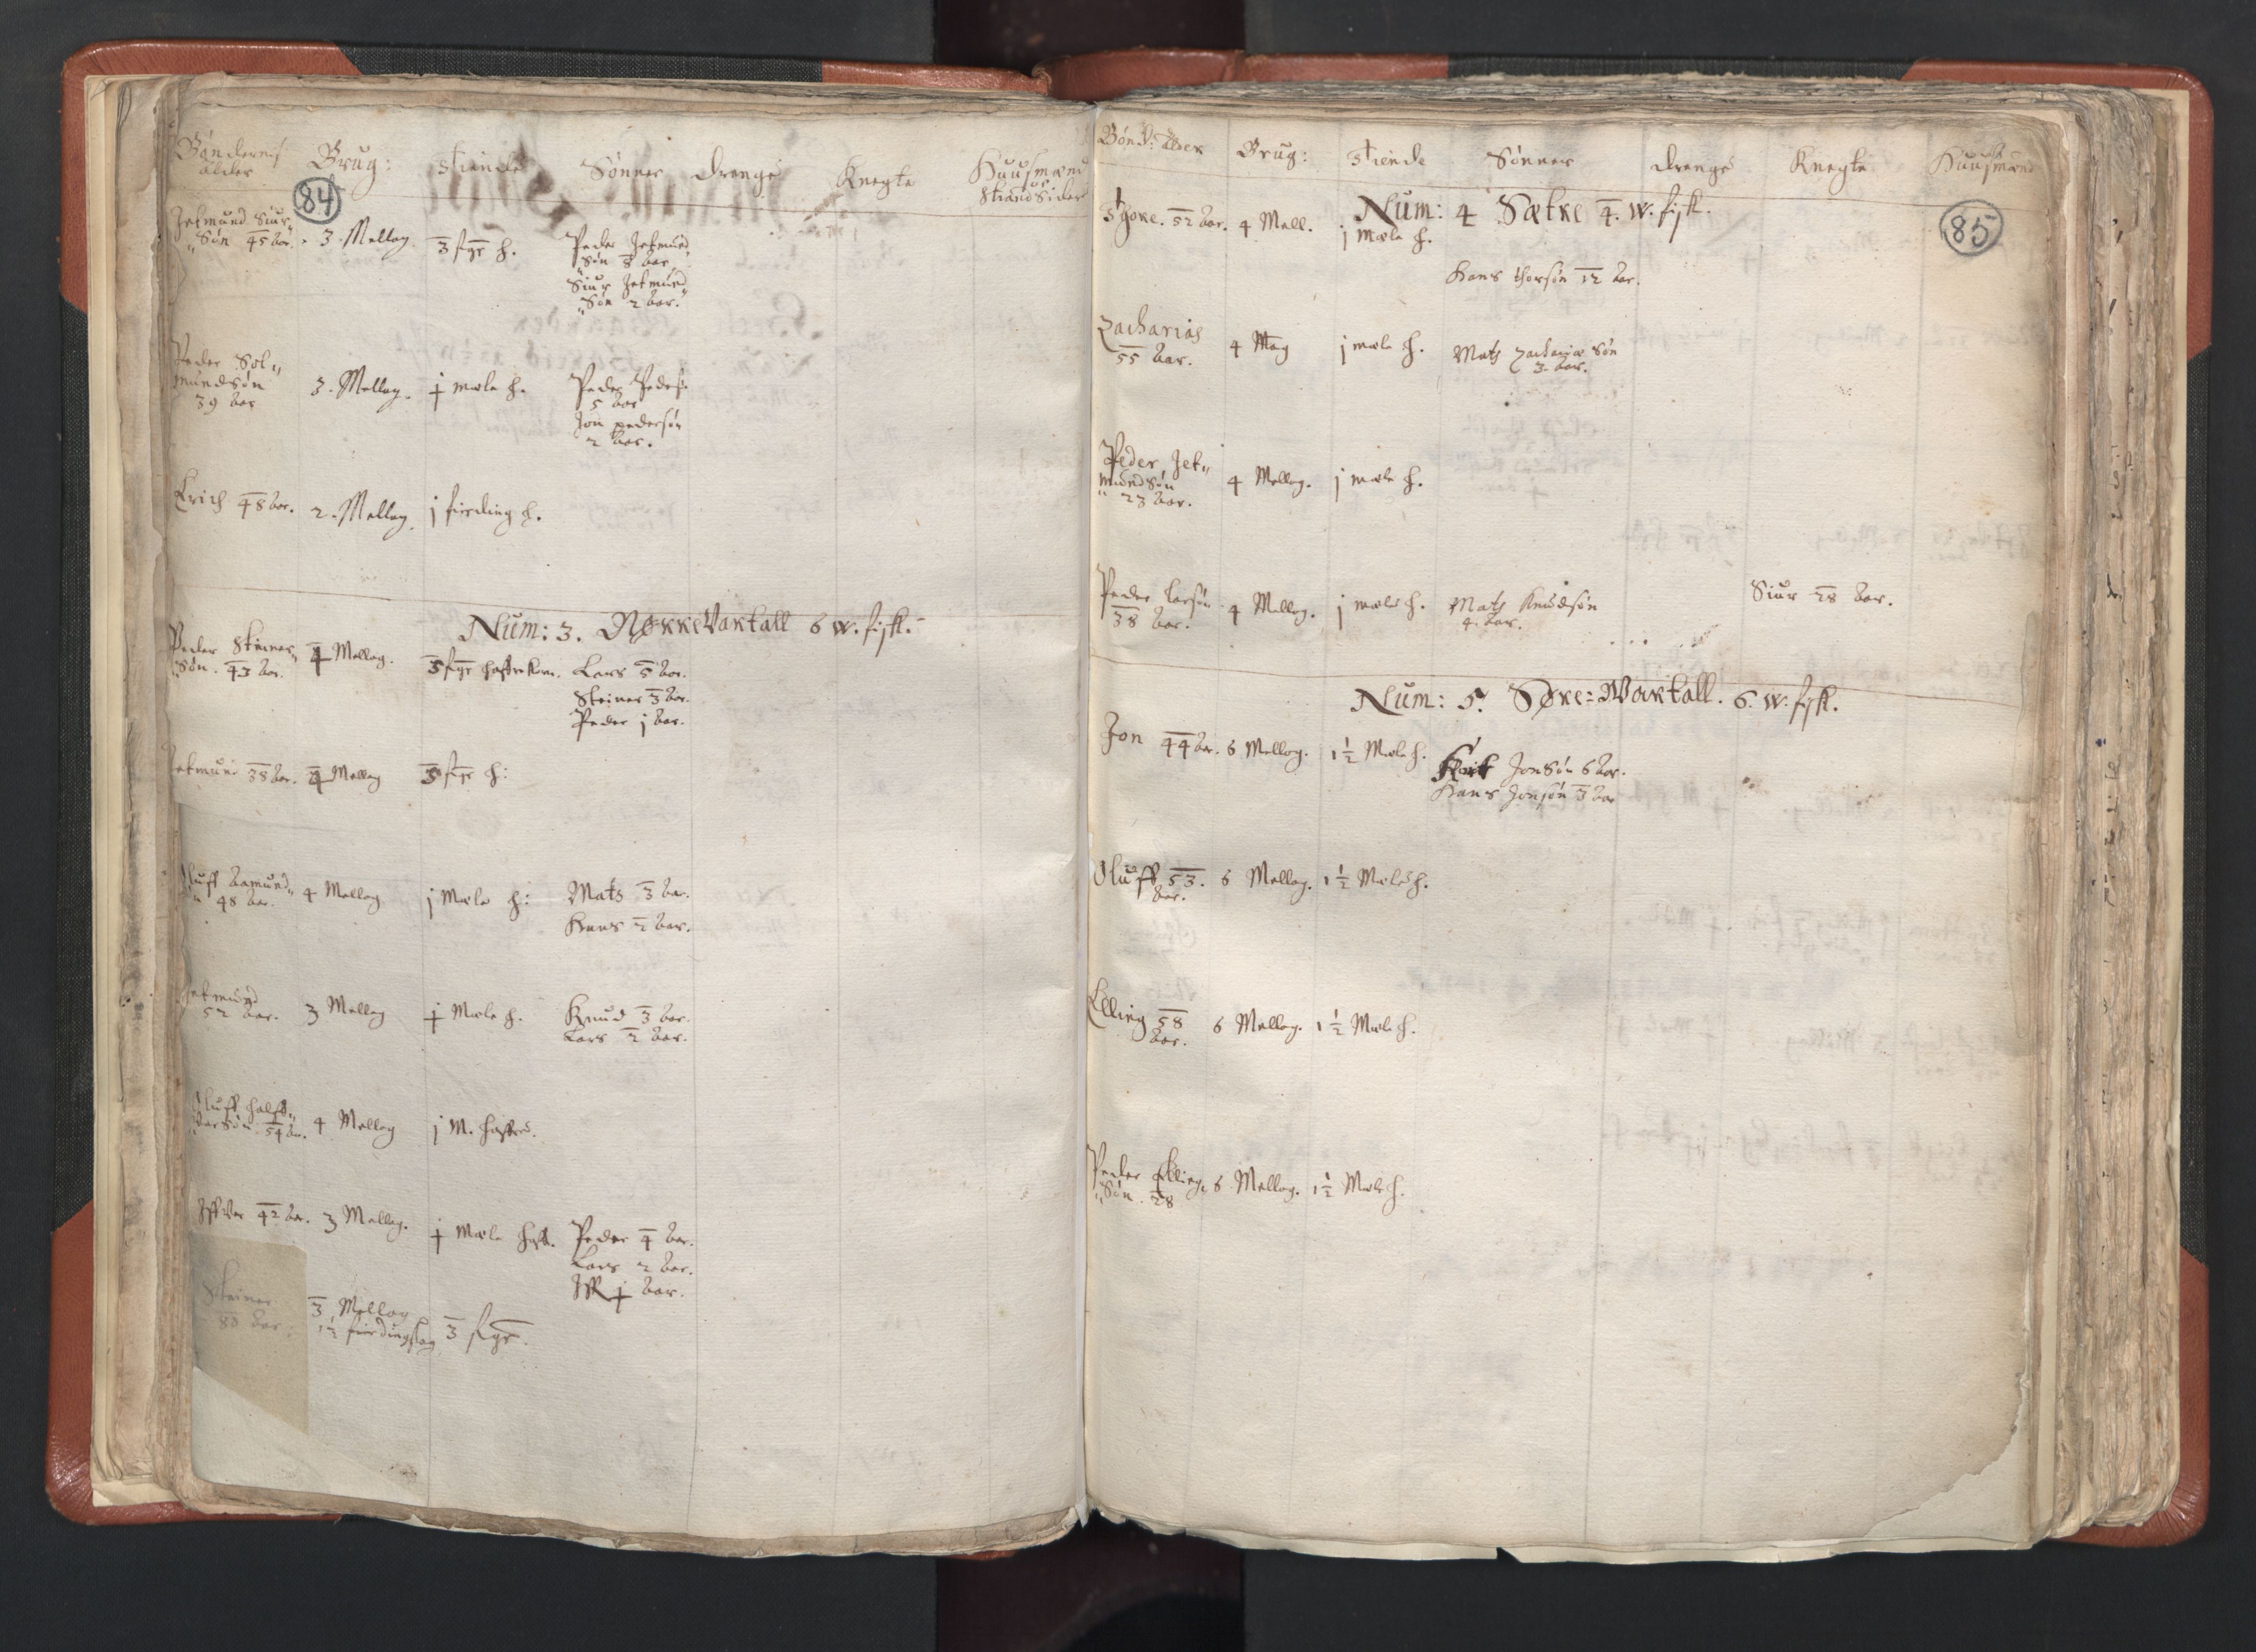 Bøndernis alder
Brug:
Tiende
Sønner
drenge
Knegte
Huusmænd
Strandsider
84
Jetmund Siur„
„Søn 45 aar.
3. Mellag
3 sgr h.
Peder Jetmund
„Søn 8 aar
Siur Jetmund
„Søn 2 aar.
Peder Sol„
mundsøn
39 aar
3. Mellag.
j mæle h.
Peder Peders:
5 aar
Jon pedersøn
2 aar.
Erich 48 aar.
2. Mellag.
j fierding h.
Num: 3. NørreVartall 6 w. fisk.
Peder Steiner„
„Søn. 43 aar.
4 Mellag.
3 sgr haffrekorn.
Lars 5 aar.
Steiner 3 aar.
Peder j aar.
Jetmund 38 aar.
4 Mellag
3 sgr h:
Oluff Aamund„
„ 48 aar.
4 Mellag
j Mæle h:
Mats 3 aar.
Hans 2 aar.
Jetmund
52 aar.
3 Mellag
j Mæle h.
Knud 3 aar.
Lars 2 aar.
Oluff Halff„
VorSøn. 54 aar.
4 Mellag
j M. haffre.
Iffver 42 aar.
3 Mellag.
j Mæle haff.
Peder 4 aar.
Lars 2 aar.
j aar.
Steiner
80 aar:
3 Mellag
1½ fierdinglag
3 sgr.
Bønd: Alder
Brug:
Tiende
Sønner
drenge
Knegte
Huusmænd
85
Num: 4 Sætre 4. w. fisk.
Thore. 52 aar.
4 Mell.
j mæle h.
Hans thorsøn 12 aar.
Zacharias
55 aar.
4 Mag
j mæle h.
Mats Zachariæ Søn
3. aar.
Peder Jet„
mundsøn
„ 23 aar.
4 Mellag.
j mæle h.
Peder Larsøn
38 aar.
4 Mellag.
j mæle h.
Mats Knudsøn
4. aar.
Siur 28 aar.
Num: 5. Søre=Wartall. 6. w. fisk.
Jon 44 aar.
6 Mellag.
1½ Mæle h.
JonSøn 6 aar.
Hans Jonsøn 3 aar
Oluff 53.
aar.
6 Mellag.
1½ Mæle h.
Elling 58
aar.
6 Mellag.
1½ Mæle h.
Peder Elling„
„Søn. 28
6 Mellag.
1½ Mæle h.